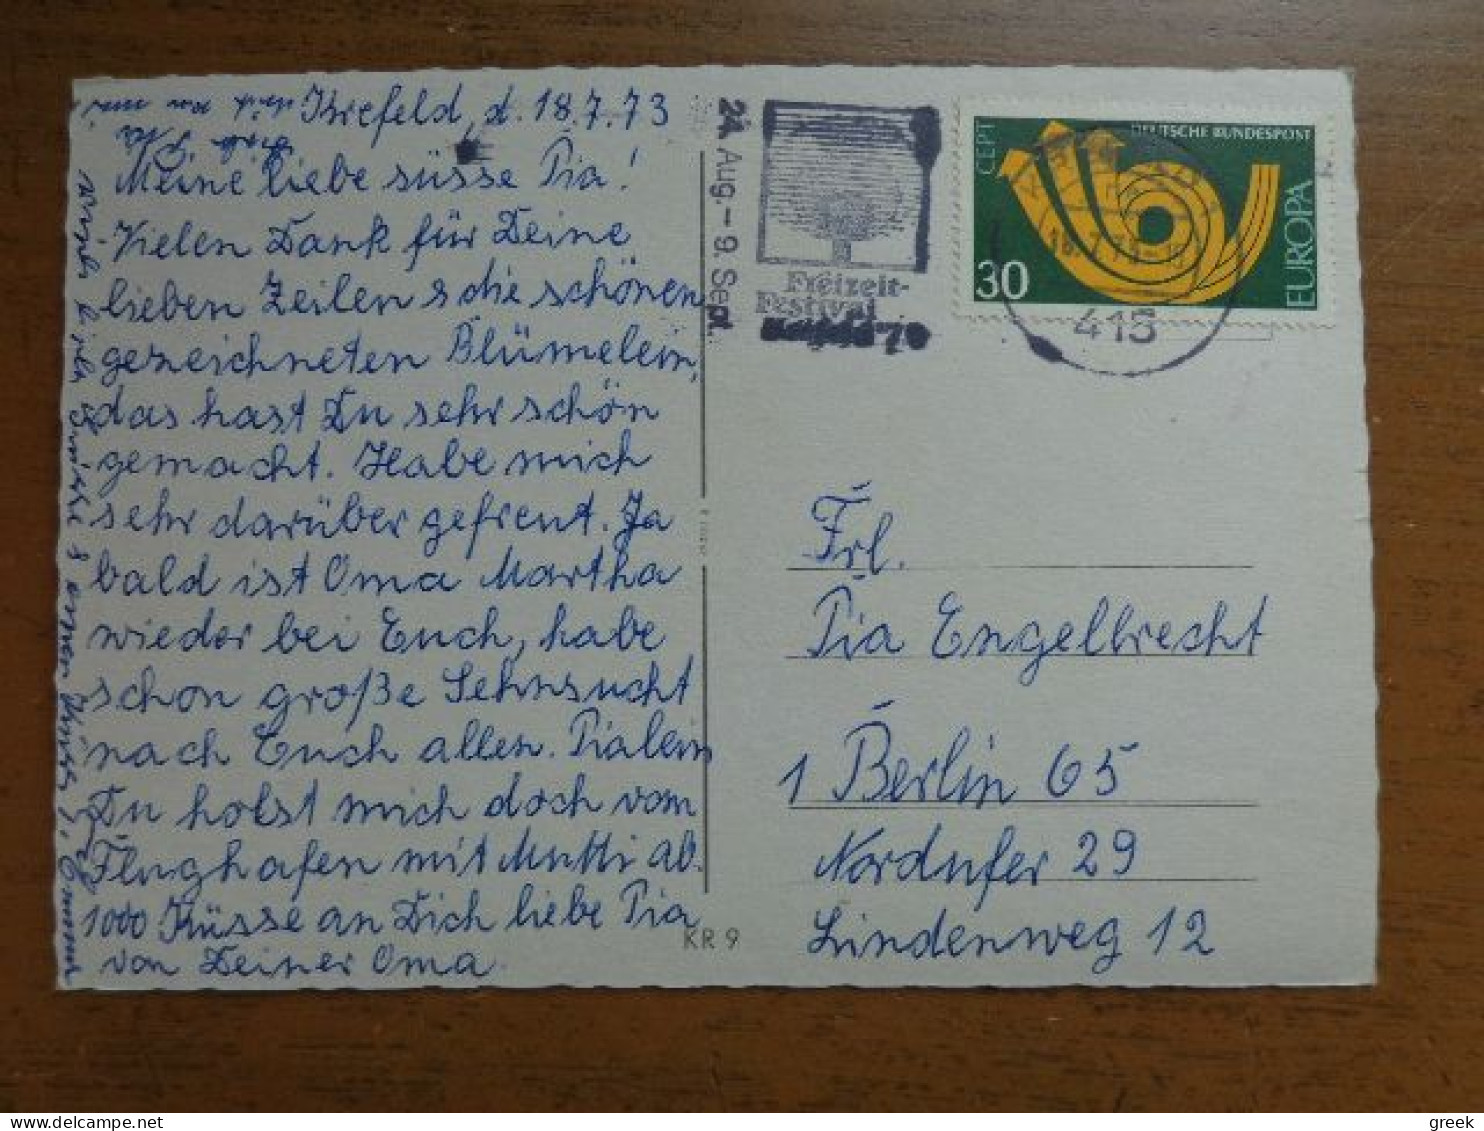 Krefeld, d. 18.7.73
Meine liebe süsse Pia!
Vielen Dank für Deine
lieben Zeilen & die schönen
gezeichneten Blümelein,
das hast Du sehr schön
gemacht. Habe mich
sehr darüber gefreut. Ja
bald ist Oma Martha
wieder bei Euch, habe
schon große Sehnsucht
nach Euch allen. Pialein
Du holst mich doch vom
Flughafen mit Mutti ab.
1000 Küsse an Dich liebe Pia
von Deiner Oma
24. Aug. – 9. Sept.
Freizeit-
Festival
CEPT
DEUTSCHE BUNDESPOST
EUROPA
30
415
Frl.
Pia Engelbrecht
1 Berlin 65
Nordufer 29
Lindenweg 12
KR 9
greek